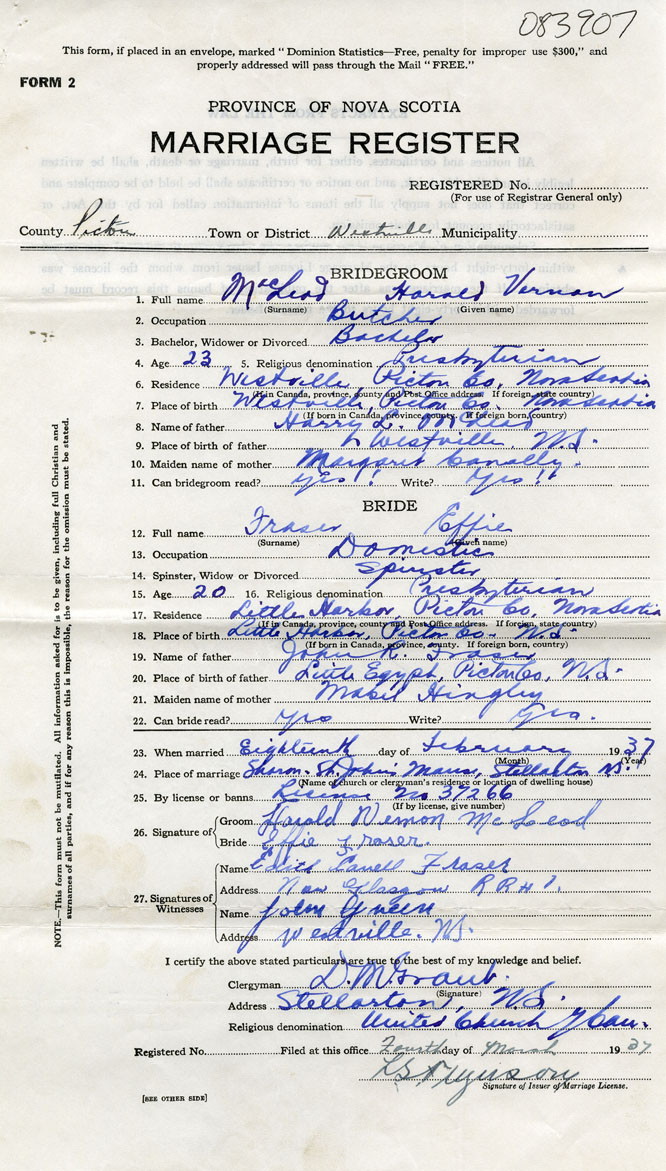 083907
This form, if placed in an envelope, marked "Dominion Statistics—Free, penalty for improper use $300," and
properly addressed will pass through the Mail "FREE."
FORM 2
PROVINCE OF NOVA SCOTIA
MARRIAGE REGISTER
REGISTERED No.
(For use of Registrar General only)
County Pictou Town or District Westville Municipality
BRIDEGROOM
1. Full name MacLeod Harold Vernon
(Surname) (Given name)
2. Occupation Butcher
3. Bachelor, Widower or Divorced Bachelor
4. Age 23 5. Religious denomination Presbyterian
6. Residence Westville, Pictou Co, Nova Scotia
(If in Canada, province, county and Post Office address. If foreign, state country)
7. Place of birth Westville, Pictou Co. Nova Scotia
(If born in Canada, province, county. If foreign born, country)
8. Name of father Harry L. McLeod
9. Place of birth of father Westville, N.S.
10. Maiden name of mother Margaret
11. Can bridegroom read? Yes!! Write? Yes!!
BRIDE
12. Full name Fraser Effie
(Surname) (Given name)
13. Occupation Domestic
14. Spinster, Widow or Divorced Spinster
15. Age 20 16. Religious denomination Presbyterian
17. Residence Little Harbor, Pictou Co, Nova Scotia
(If in Canada, province, county and Post Office address. If foreign, state country)
18. Place of birth Little Harbor, Pictou Co. N.S.
(If born in Canada, province, county. If foreign born, country)
19. Name of father John R. Fraser
20. Place of birth of father Little Egypt, Pictou Co, N.S.
21. Maiden name of mother Mabel Hingley
22. Can bride read? Yes Write? Yes.
23. When married Eighteenth day of February 1937
(Month) (Year)
24. Place of marriage St. John's Manse, Stellarton N.S.
(Name of church or clergyman's residence or location of dwelling house)
25. By license or banns License No 37266
(If by license, give number)
26. Signature of Groom Harold Vernon McLeod
Bride Effie Fraser.
27. Signatures of Witnesses Name Edith Fraser
Address New Glasgow R R # 1.
Name John Green
Address Westville. N.S.
I certify the above stated particulars are true to the best of my knowledge and belief.
Clergyman D. M. Grant.
(Signature)
Address Stellarton, N.S.
Religious denomination United Church of Can.
Registered No. Filed at this office Fourth day of March 1937
Signature of Issuer of Marriage License.
[SEE OTHER SIDE]
NOTE.—This form must not be mutilated. All information asked for is to be given, including full Christian and
surnames of all parties, and if for any reason this is impossible, the reason for the omission must be stated.